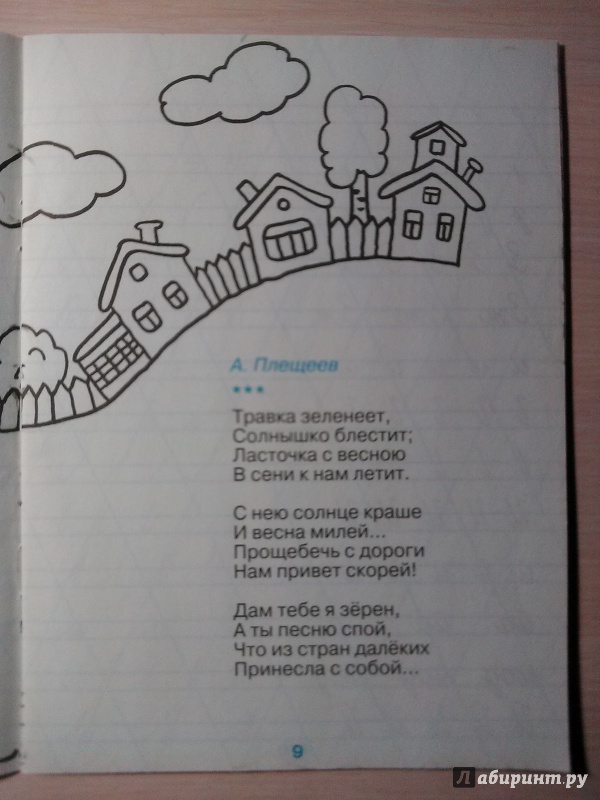 А. Плещеев
***
Травка зеленеет,
Солнышко блестит;
Ласточка с весною
В сени к нам летит.
С нею солнце краше
И весна милей...
Прощебечь с дороги
Нам привет скорей!
Дам тебе я зёрен,
А ты песню спой,
Что из стран далёких
Принесла с собой...
9
Лабиринт.ру